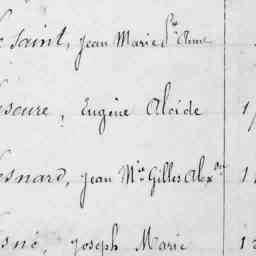 saint, Jean Marie Ste Anne
esoure, Eugène Alcide 1
esnard, Jean Mie Gilles Alexdre 1
esné, Joseph Marie 1